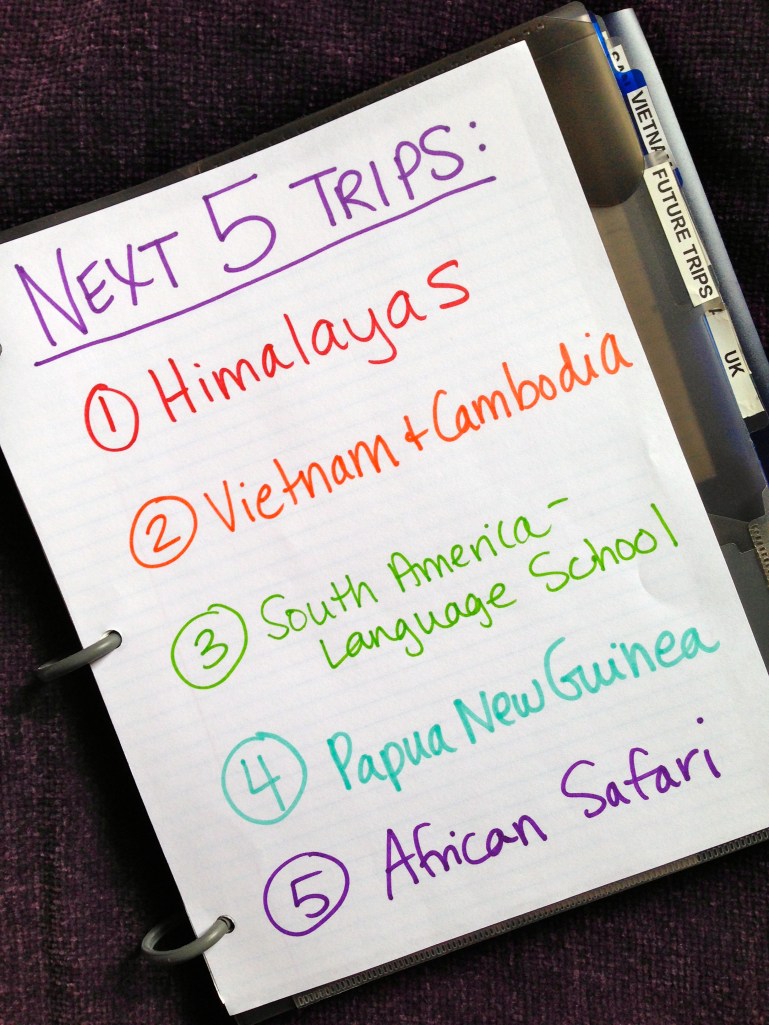 NEXT 5 TRIPS:
1 Himalayas
2 Vietnam + Cambodia
3 South America -
Language School
4 Papua New Guinea
5 African Safari
VIETNA
FUTURE TRIPS
UK